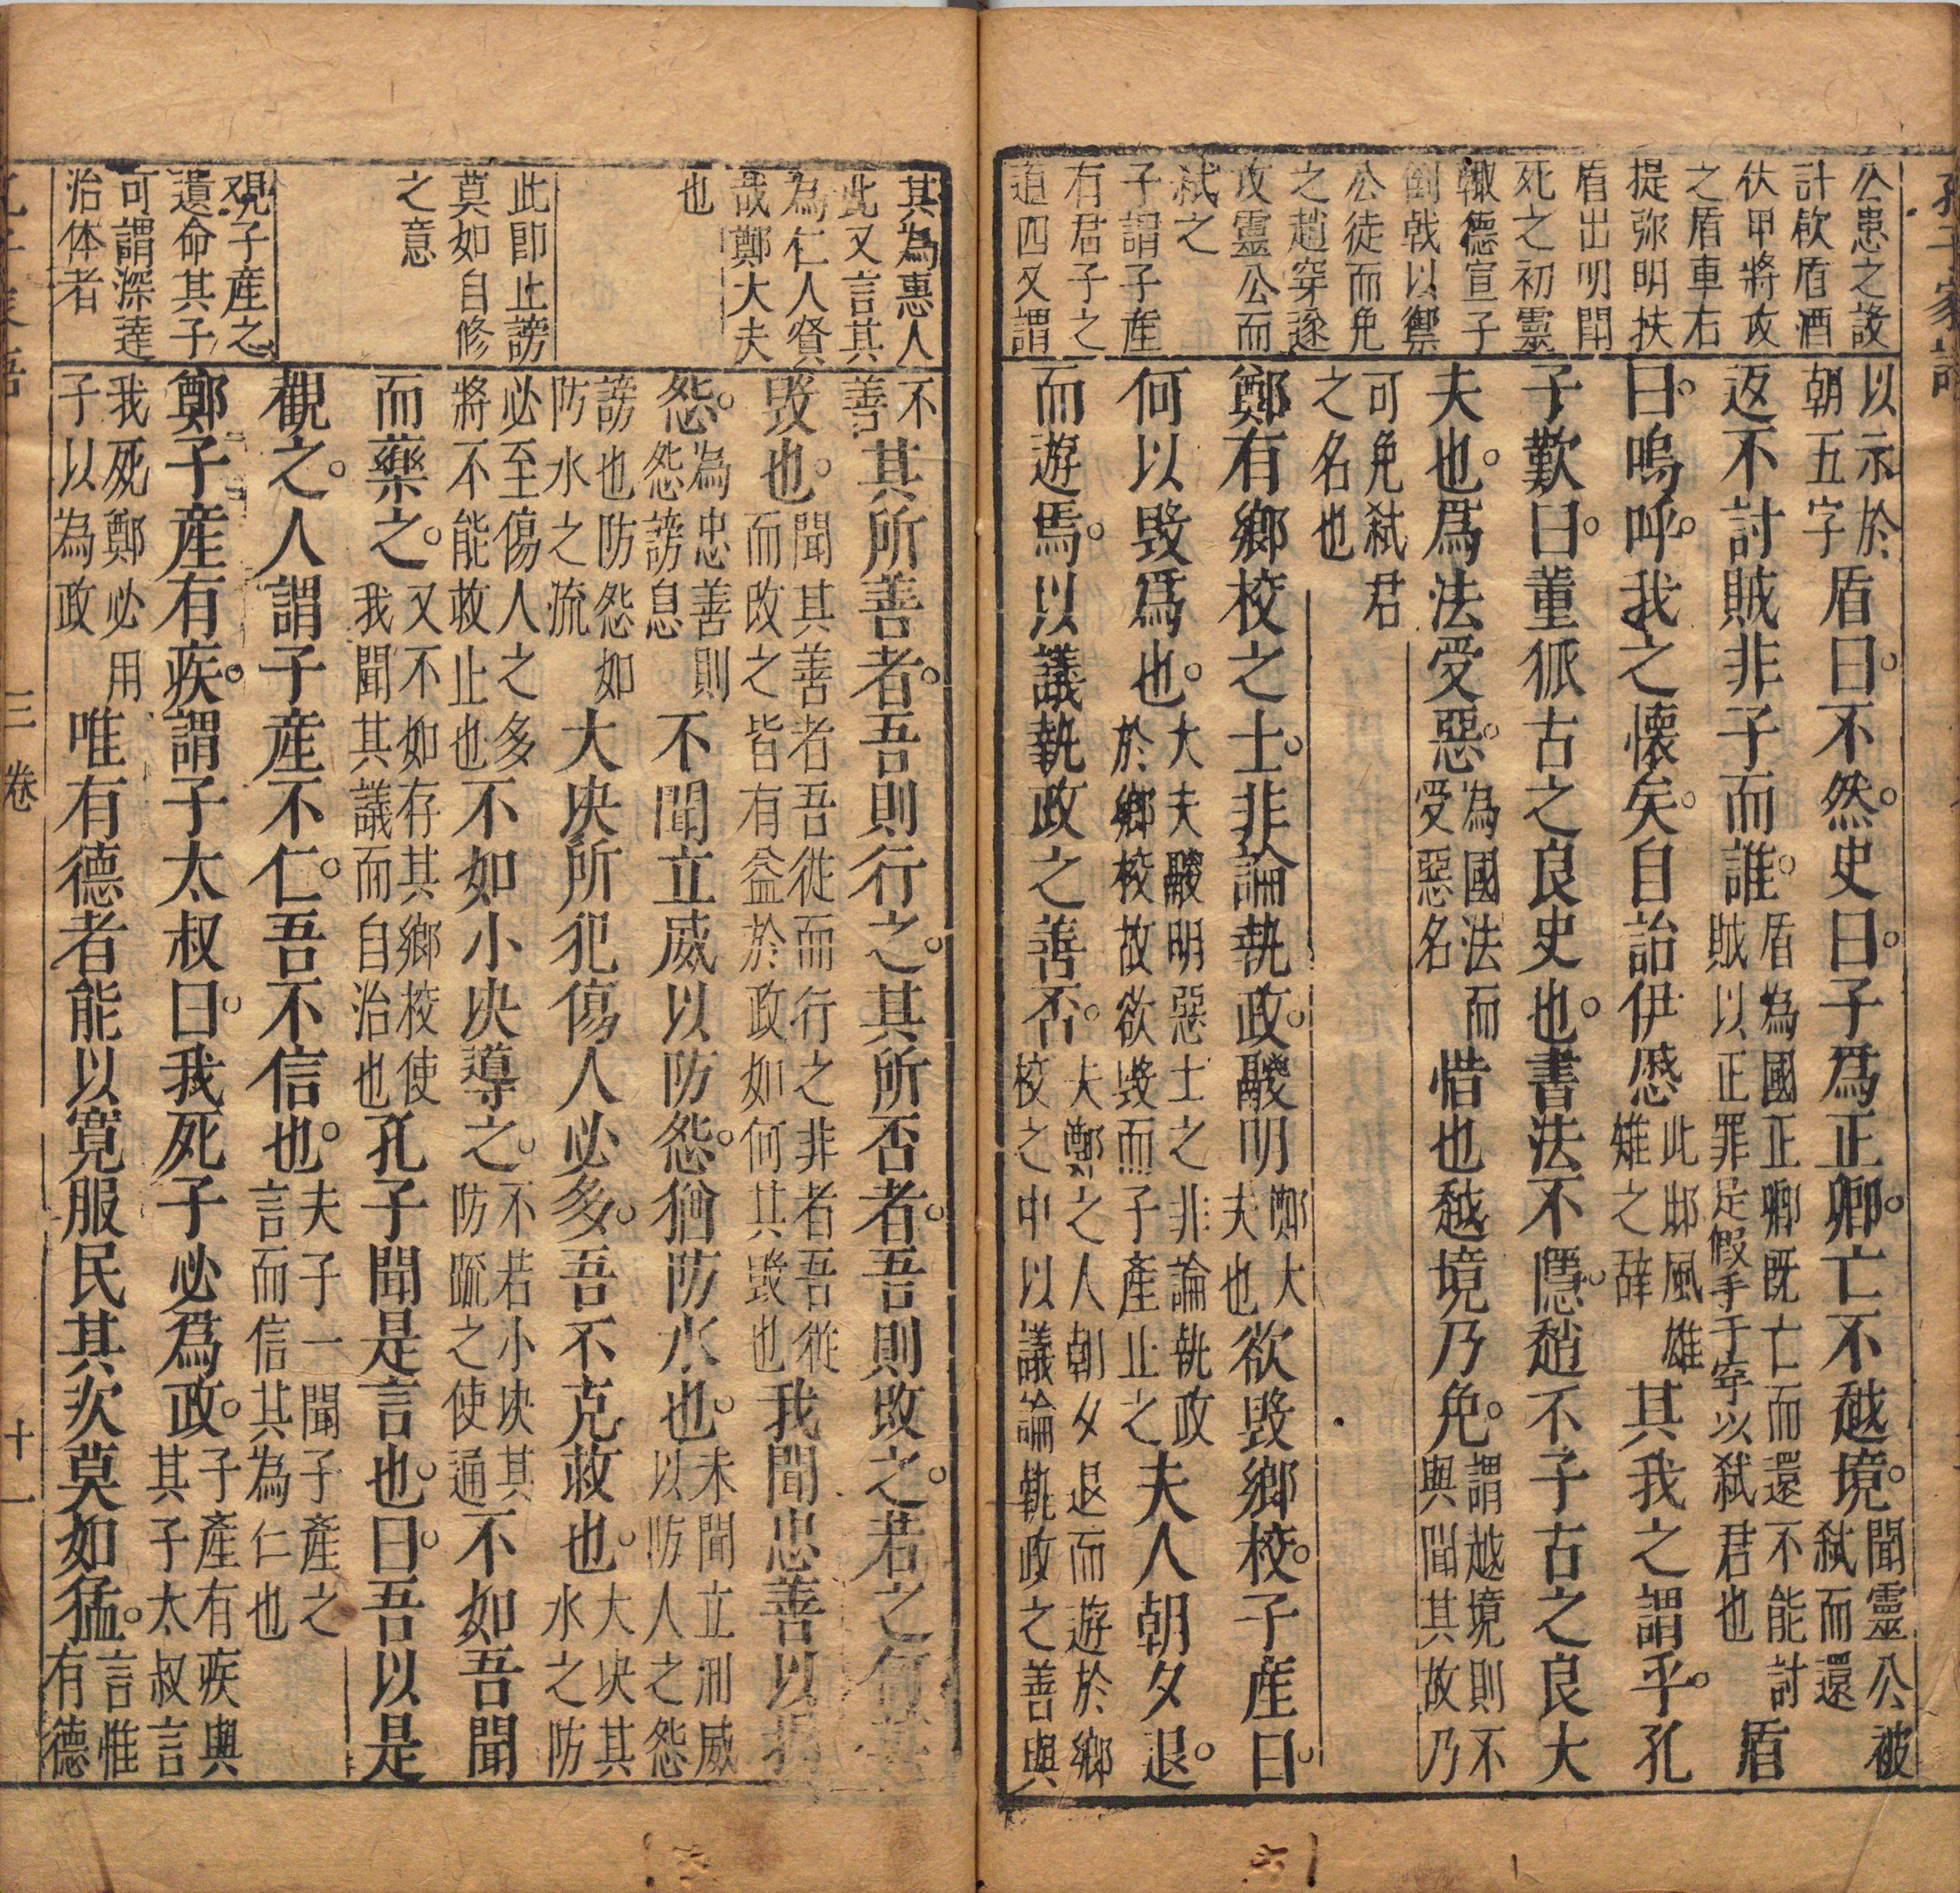 孔子家語
公患之設
計飲盾酒
伏甲將攻
之盾車右
提弥明扶
盾出明鬪
死之初靈
輙德宣子
倒戟以禦
公徒而免
之趙穿逐
攻靈公而
弑之
子謂子產
有君子之
道四又謂
以示於朝五字盾曰。不然。史曰。子爲正卿。亡不越境。聞靈公被弑而還
返不討賊非子而誰。盾為國正卿既亡而還不能討賊以正罪足假手于穿以弑君也盾
曰。嗚呼。我之懷矣。自詒伊慼此邶風雄雉之辭其我之謂乎。孔
子歎曰。董狐古之良史也。書法不隱。趙不子古之良大
夫也。爲法受惡。為國法而受惡名惜也越境乃免。謂越境則不與聞其故乃
可免弑君之名也
鄭有鄉校之士。非論執政。鬷明鄭大夫也欲毀鄉校。子產曰。
何以毀爲也。大夫鬷明惡士之非論執政於鄉校故欲毀而子產止之夫人朝夕退。
而遊焉。以議執政之善否。夫鄭之人朝夕退而遊於鄉校之中以議論執政之善與
其為惠人
此又言其
為仁人賢
哉鄭大夫
也
此即止謗
莫如自修
之意
覌子產之
遺命其子
可謂深達
治体者
不善其所善者。吾則行之。其所否者。吾則改之。若之何其
毀也。聞其善者吾從而行之非者吾從而改之皆有益於政如何其毀也我聞忠善以損
怨。為忠善則怨謗息不聞立威以防怨。猶防水也。未聞立刑威以防人之怨
謗也防怨如防水之流大決所犯傷人必多。吾不克救也。大決其水之防
必至傷人之多將不能救止也不如小決導之。不若小決其防䟽之使通不如吾聞
而藥之。又不如存其鄉校使我聞其議而自治也孔子聞是言也。曰。吾以是
觀之。人謂子產不仁。吾不信也。夫子一聞子產之言而信其為仁也
鄭子產有疾。謂子太叔曰。我死子必爲政。子產有疾與其子太叔言
我死鄭必用子以為政唯有德者能以寛服民其次莫如猛。言惟有德
三卷
十一